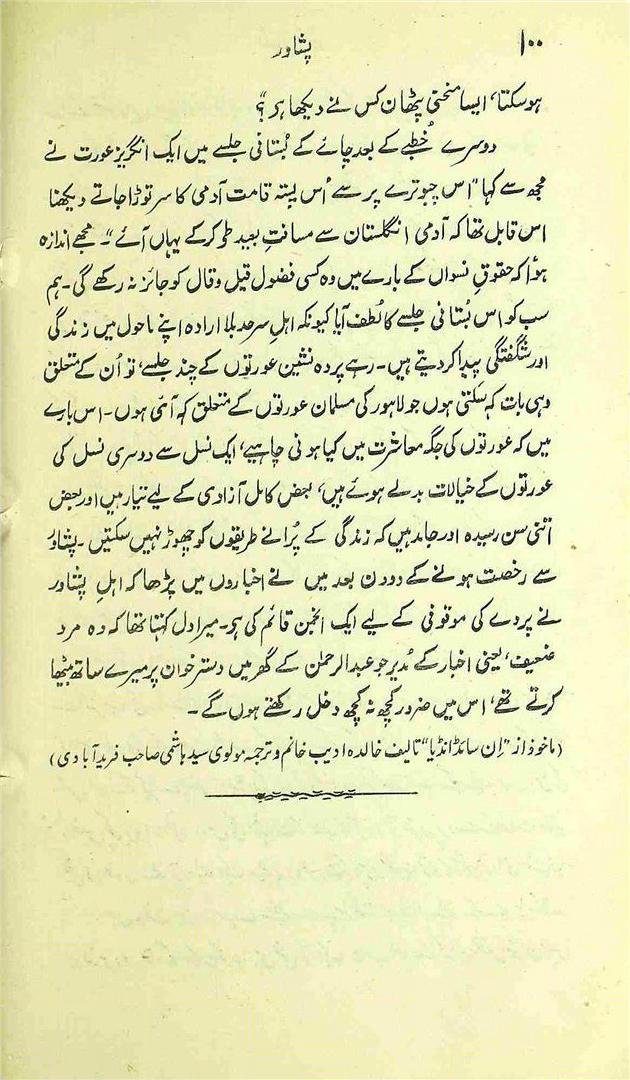 ۱۰۰
پشاور
ہوسکتا، ایسا منحنی پٹھان کس نے دیکھا ہر؟"
دوسرے خُطبے کے بعد چائے کے بُستانی جلسے میں ایک انگریز عورت نے
مجھ سے کہا "اس چبوترے پر سے اُس پستہ قامت آدمی کا سر توڑا جاتے دیکھنا
اس قابل تھا کہ آدمی انگلستان سے مسافتِ بعید طی کرکے یہاں آئے"۔ مجھے اندازہ
ہوُا کہ حقوقِ نسواں کے بارے میں وہ کسی فضول قیل و قال کو جائز نہ رکھے گی۔ ہم
سب کو اس بُستانی جلسے کا لُطف آیا کیونکہ اہلِ سرحد بلا ارادہ اپنے ماحول میں زندگی
اور شگفتگی پیدا کردیتے ہیں۔ رہے پردہ نشین عورتوں کے چند جلسے، تو اُن کے متعلق
وہی بات کہ سکتی ہوں جو لاہور کی مسلمان عورتوں کے متعلق کہ آئی ہوں۔ اس بارے
میں کہ عورتوں کی جگہ معاشرت میں کیا ہونی چاہیے، ایک نسل سے دوسری نسل کی
عورتوں کے خیالات بدلے ہوئے ہیں، بعض کامل آزادی کے لیے تیار ہیں اور بعض
اتنی سن رسیدہ اور جامد ہیں کہ زندگی کے پُرانے طریقوں کو چھوڑ نہیں سکتیں۔ پشاور
سے رخصت ہونے کے دو دن بعد میں نے اخباروں میں پڑھا کہ اہلِ پشاور
نے پردے کی موقوفی کے لیے ایک انجمن قائم کی ہر۔ میرا دل کہتا تھا کہ وہ مرد
ضعیف، یعنی اخبار کے مُدیر جو عبدالرحمٰن کے گھر میں دسترخوان پر میرے ساتھ بیٹھا
کرتے تھے، اس میں ضرور کچھ نہ کچھ دخل رکھتے ہوں گے۔
(ماخوذ از "اِن سائڈ انڈیا" تالیف خالدہ ادیب خانم و ترجمہ مولوی سید ہاشمی صاحب فریدآبادی)